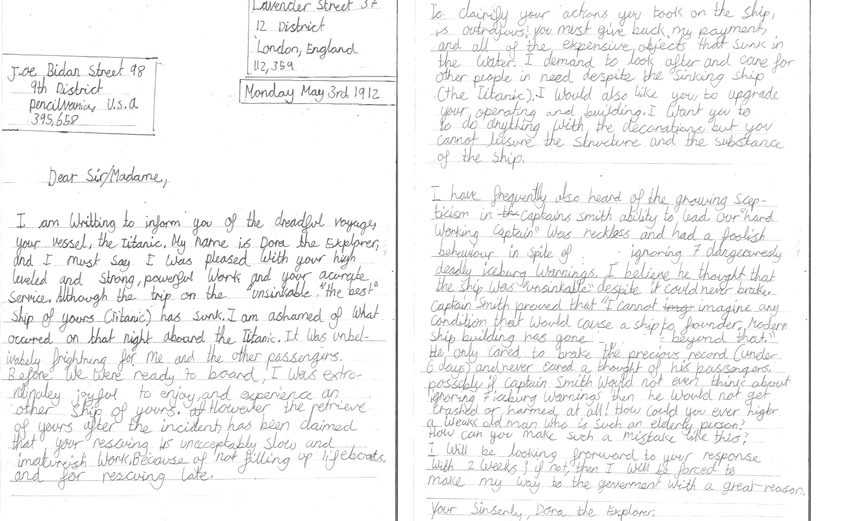 Lavender Street 37
12 District
London, England
U2,359
Joe Bidan Street 98
9th District
pencilvania, U.S.a.
395,658
Monday May 3rd 1912
Dear Sir/Madame,
I am Writting to inform you of the dreadful voyage,
your vessel, the Titanic. My name is Dora the Explorer,
and I must say I was pleased with your high
leveled and strong, powerful work and your acurate
service. Although the trip on the "unsinkable" "the best"
ship of yours (Titanic) has sunk. I am ashamed of what
occured on that night aboard the Titanic. It was unbel-
ivabely frightning for me and the other passengers.
Before we were ready to board, I was extro-
rdinaley joyful to enjoy, and experience an
other ship of yours. However the retrieve
of yours after the incident, has been claimed
that your rescuing is unacceptably slow and
imatureish work. Because of not filling up lifeboats,
and for rescuing late.
To clairify your actions you took on the ship,
is outrageous; you must give back my payment,
and all of the expensive objects that sunk in
the water. I demand to look after and care for
other people in need despite the sinking ship
(the Titanic). I would also like you, to upgrade
your operating and building. I want you to
to do anything with the decorations, but you
cannot the structure and the substance
of the ship.
I have frequently also heard of the growing scep-
ticism in the Captains Smith ability to lead. Our "hard
working Captain" was reckless and had a foolish
behaviour in spite of ignoring 7 dangerously
deadly iceburg warnings. I believe he thought that
the ship was "unsinkable" despite it could never brake.
Captain Smith proved that "I cannot imagine any
condition that would cause a ship to founder. Modern
ship building has gone beyond that."
He only cared to brake the precious record (under
6 days) and never cared a thought of his passengers.
possibly if Captain Smith would not even think about
ignoring 7 iceburg warnings then he would not get
crashed or harmed at all! How could you ever higher
a weak, old man who is such an elderly person?
How can you make such a mistake like this?
I will be looking frorward to your response
with 2 weeks; if not, then I will be forced to
make my way to the goverment with a great reason.
Your Sinserly, Dora the Explorer.